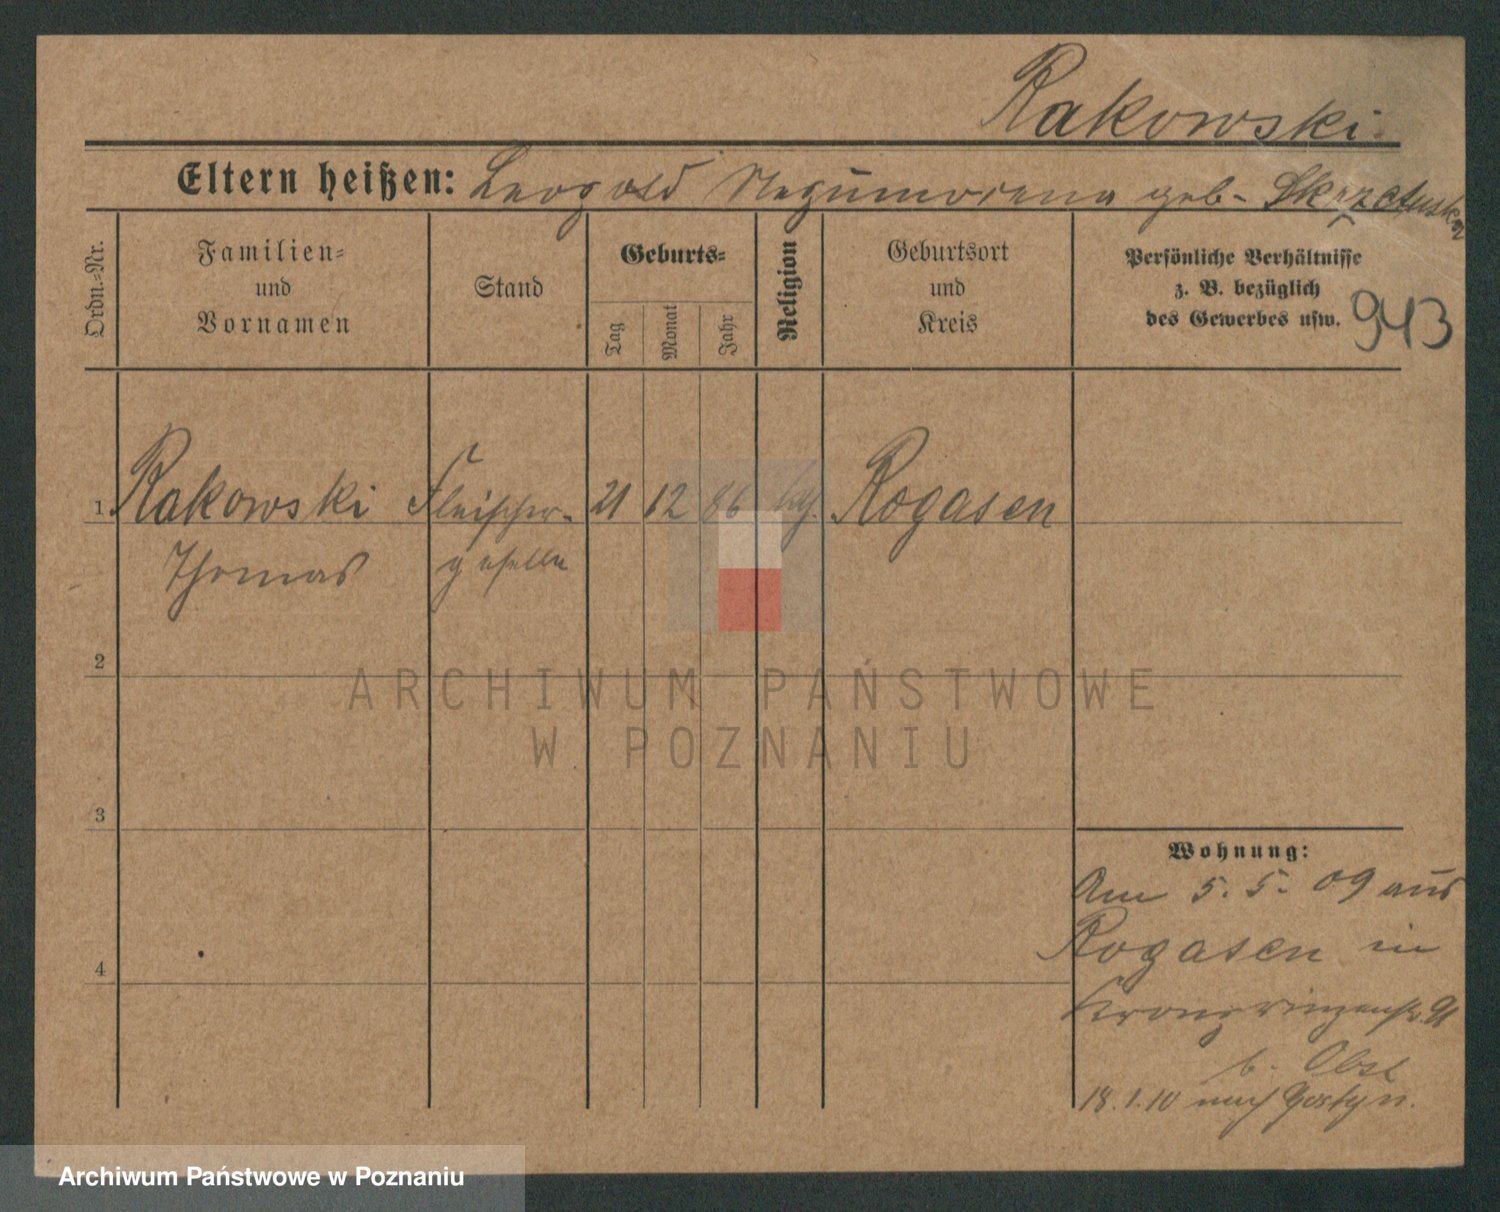 Rakowski.
Eltern heißen: Leopold geb. Skrzatuska
Ordn.-Nr.
Familien-
und
Vornamen
Stand
Geburts-
Tag
Monat
Jahr
Religion
Geburtsort
und
Kreis
Persönliche Verhältnisse
z. B. bezüglich
des Gewerbes usw.
943
1 Rakowski Fleischer- 21 12 86 kth. Rogasen
Thomas geselle
2
3
4
Wohnung:
Am 5. 5. 09 aus
Rogasen in
Kronprinzenstr.
b. Obst
18.1.10 nach Gostyn.
ARCHIWUM PAŃSTWOWE
W POZNANIU
Archiwum Państwowe w Poznaniu